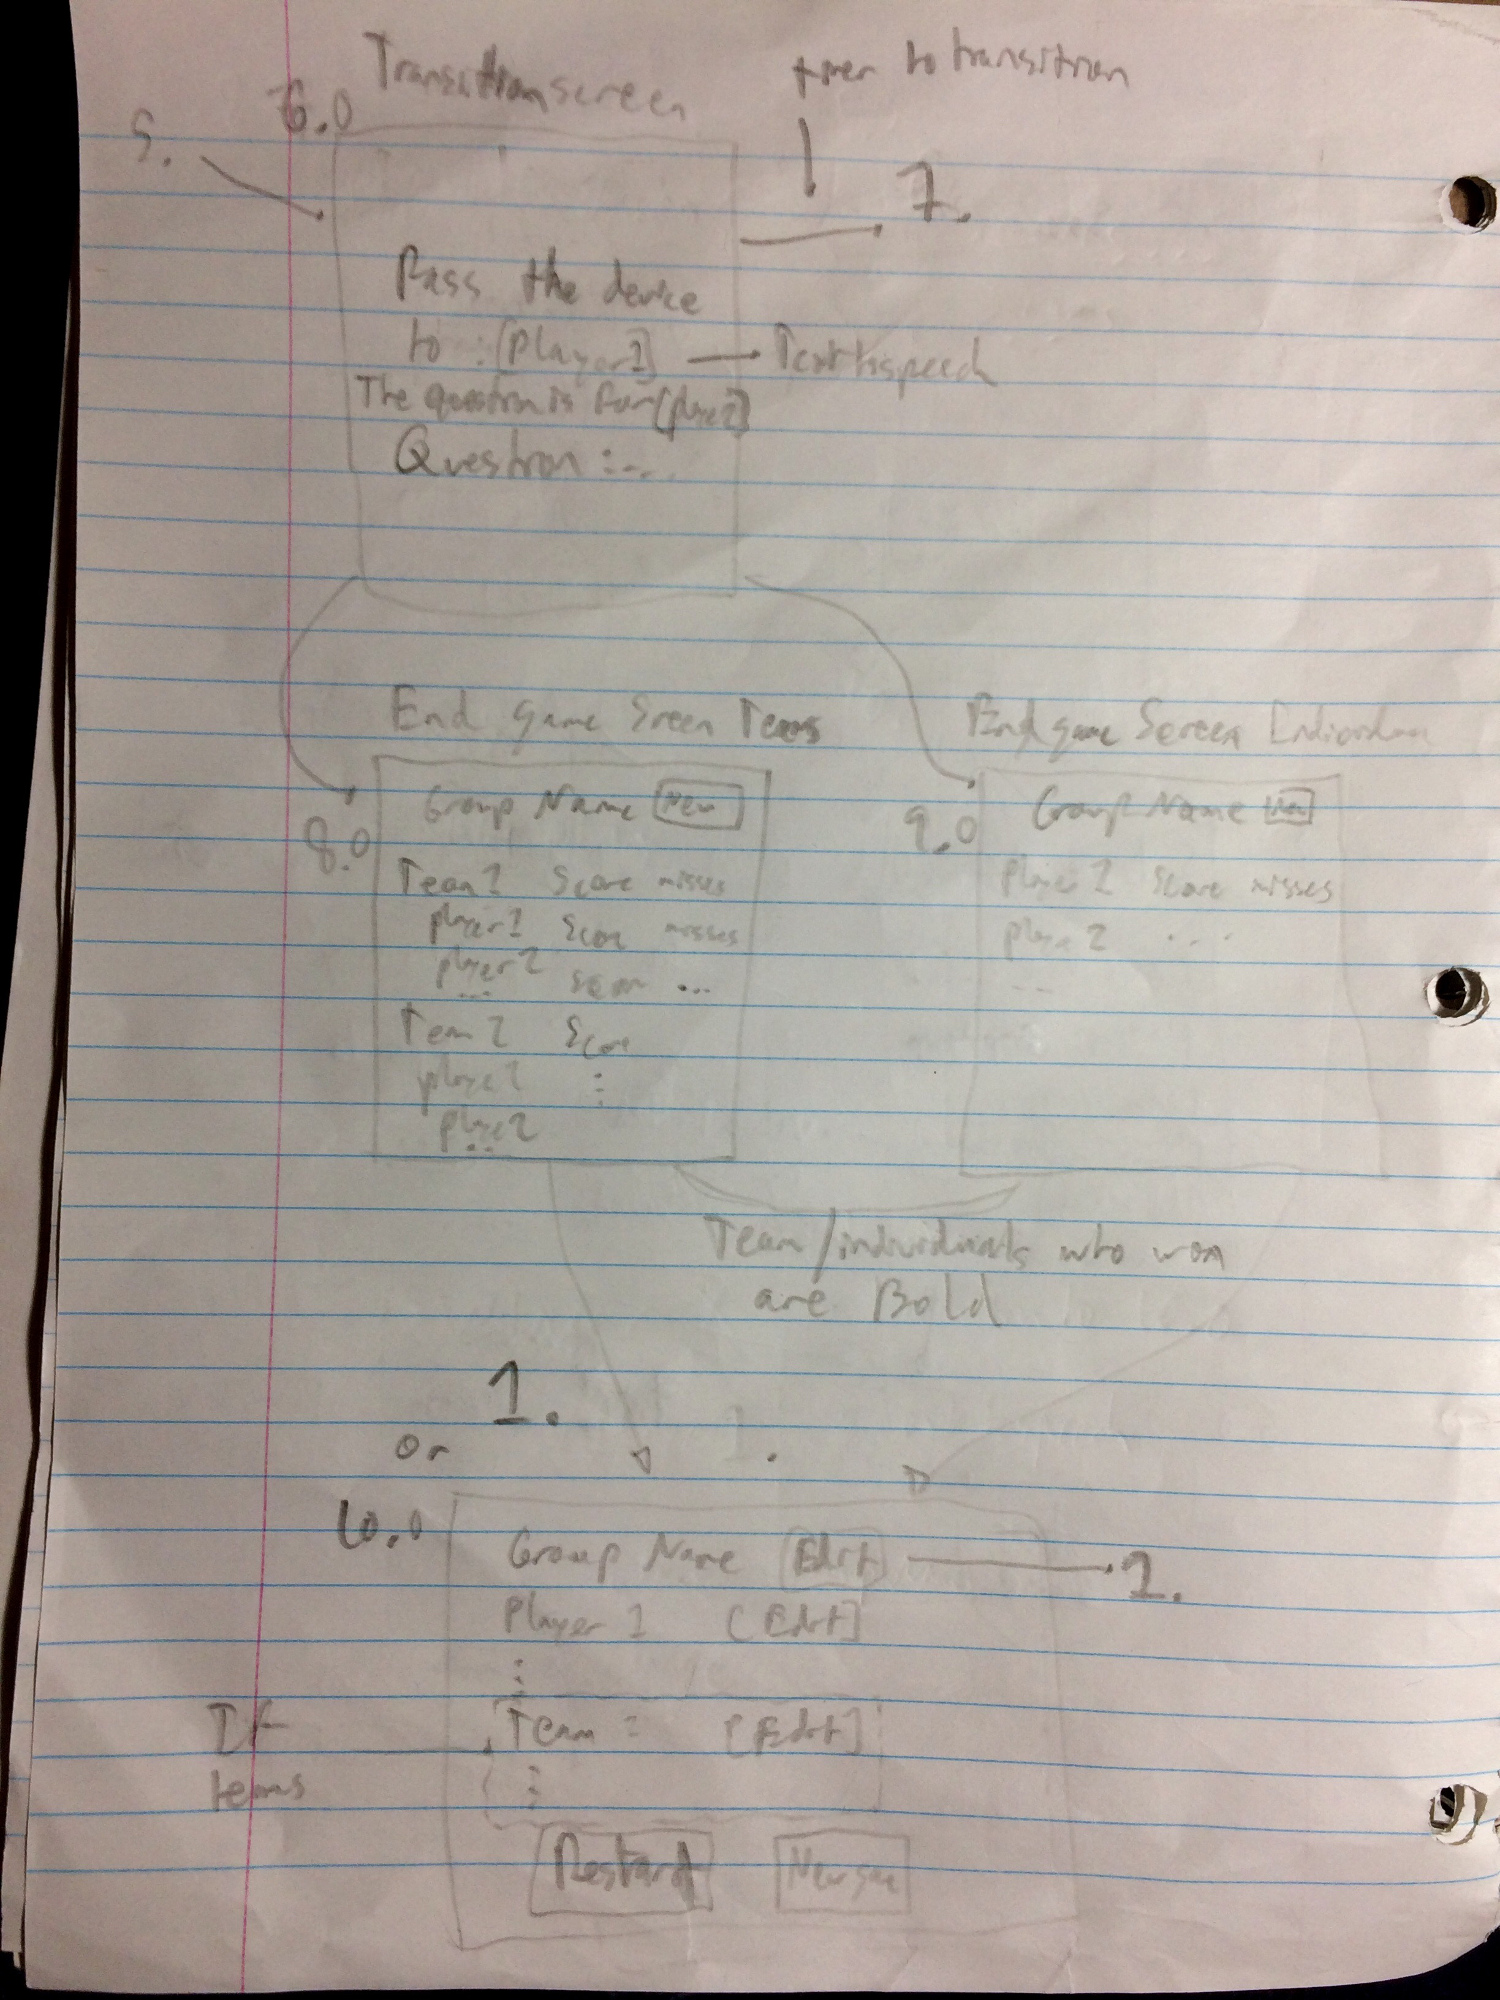 Transition screen
timer to transition
6.0
5.
7.
Pass the device
to : [Player 1]
Text to speech
The question is for [player 2]
Question : ...
End game Sreen Teams
End game Screen
8.0
Group Name
Team 1 Score misses
player 1 Score misses
player 2 score ...
...
Team 2 Score
player 1 :
player 2
...
9.0
Group Name
Player 1 Score misses
player 2 ...
...
Team/individuals who won
are Bold
1.
or
10.0
Group Name [Edit]
1.
Player 1 [Edit]
:
If
teams
Team : [Edit]
:
Restart